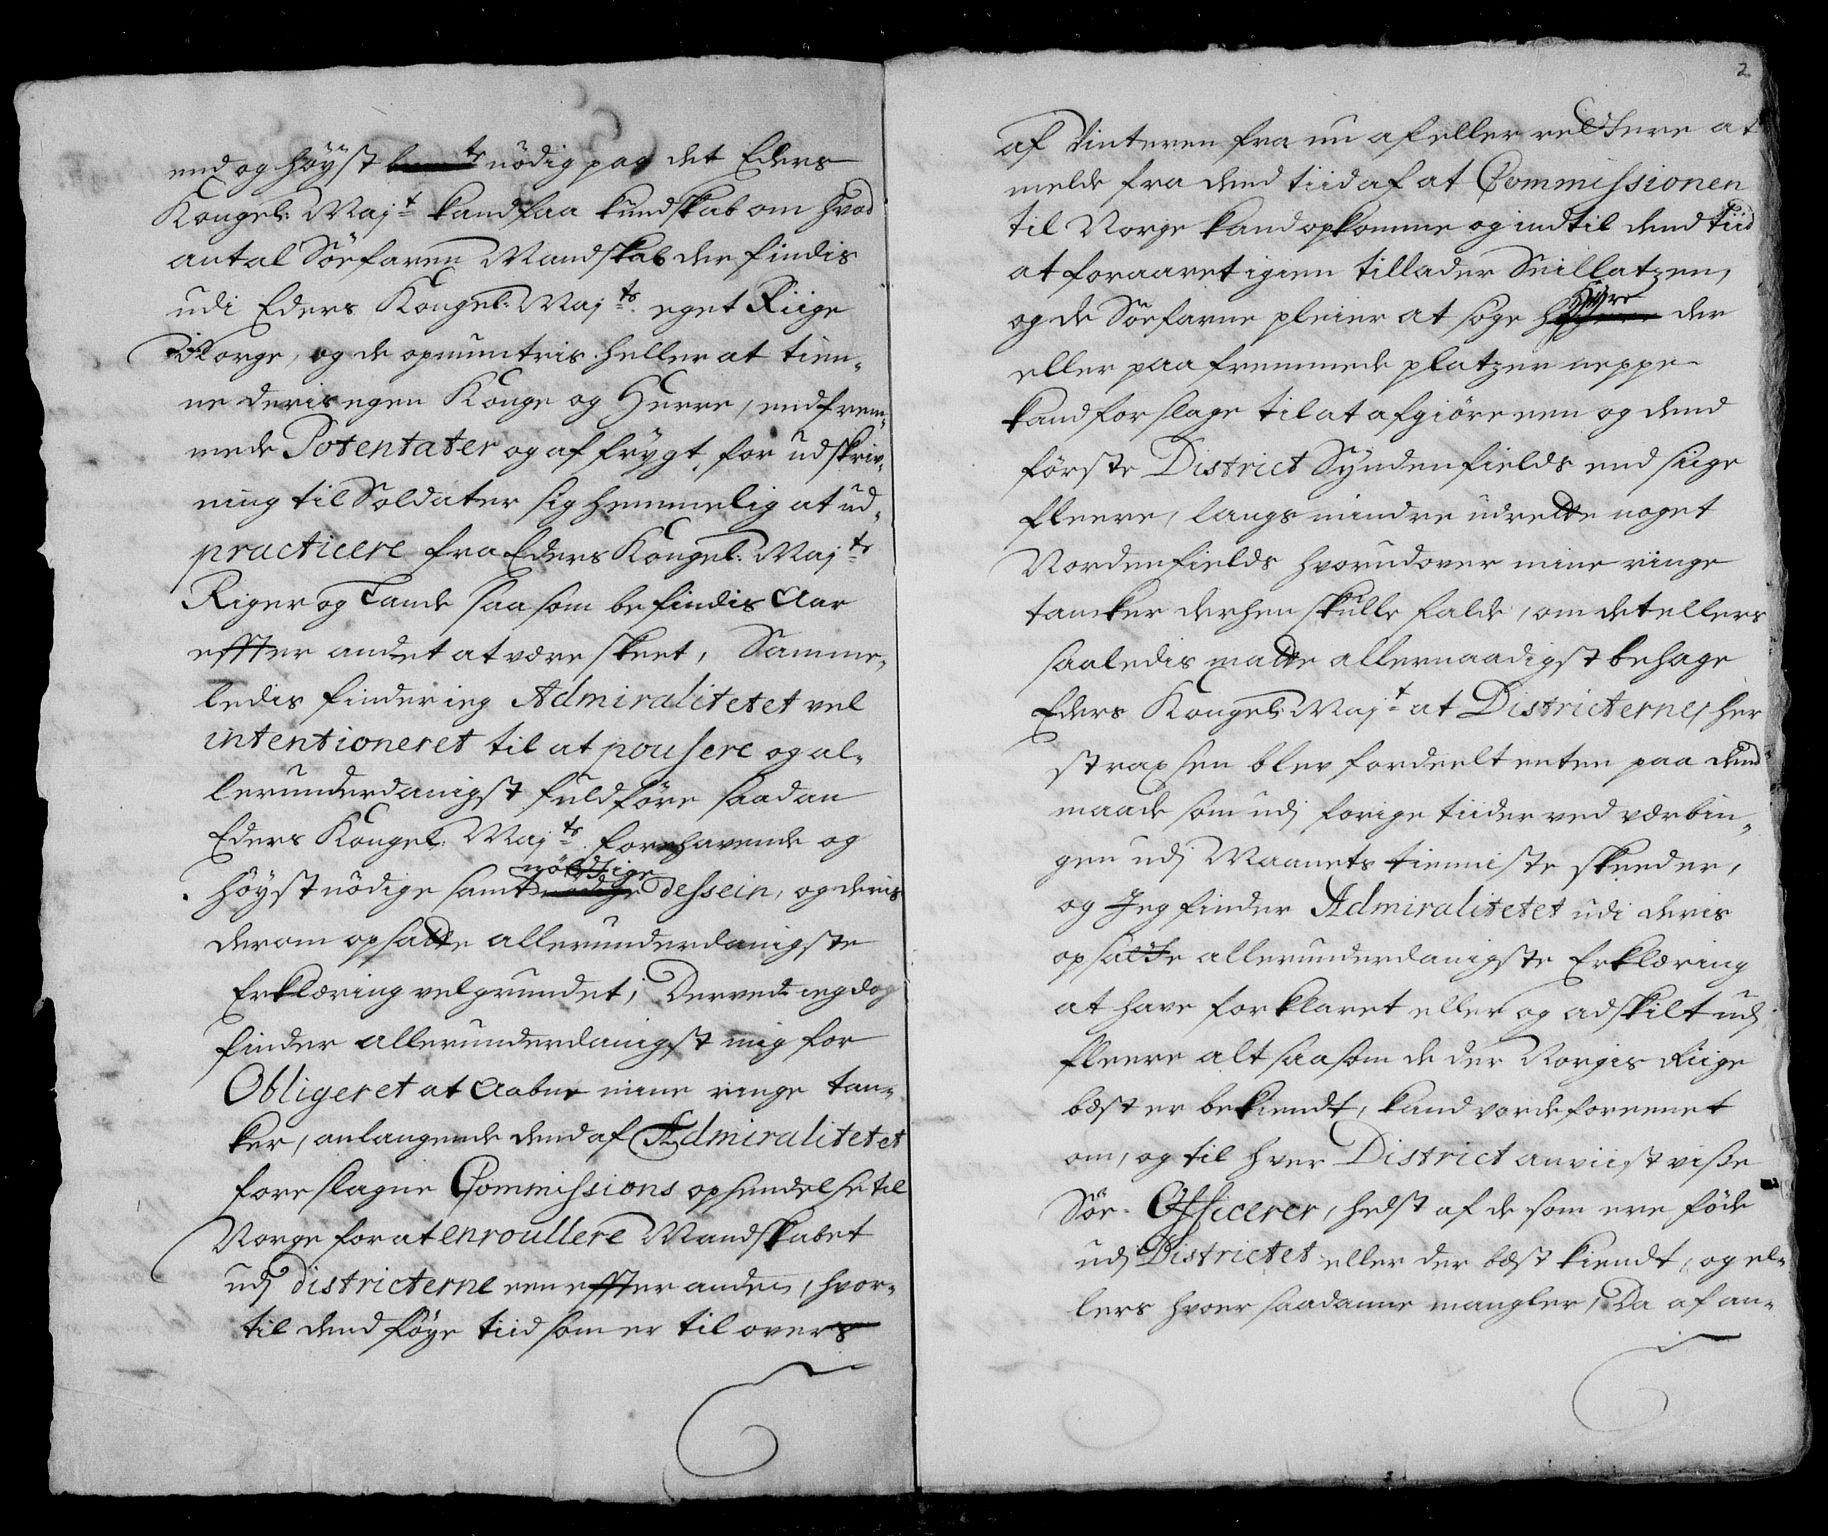 end og höyst nödig paa det Eders
Kongel: Maj:t kand faa kundskab om hvad
antal Söefaren Mandskab der findis
udi Eders Kongel: Maj:ts eget Riige
Norge, og de opmuntris heller at tien-
ne deris egen Konge og Herre, end frem-
mede Potentater og af frygt for udskriv-
ning til Soldater sig hemmelig at ud-
practicere fra Eders Kongel: Maj:ts
Riger og Lande saasom befindis Aar
effter andet at være skeet, Samme-
ledis finder ieg Admiralitetet vel
intentioneret til at pousere og al-
lerunderdanigst fuldföre saadan
Eders Kongel: Maj:ts forehavende og
nöttige
höyst nödige samt dessein, og deris
derom opsatte allerunderdanigste
Erklæring velgrundet; Derved ieg dog
finder allerunderdanigst mig for
Obligeret at Aabne mine ringe tan-
ker, anlangende dend af Admiralitetet
foreslagne Commissions opsendelse til
Norge for at enroullere Mandskabet
udj districterne een effter anden, hvor-
til dend föye tiid som er til overs
2
af Vinteren fra nu af eller rettere at
melde fra dend tiid af at Commissionen
til Norge kand opkomme og indtil dend tiid
at foraaret igien tillader Seillatzen,
hyre
og de Söefarne pleier at söge der
eller paa fremmede platzer neppe
kand forslage til at afgiöre een og dend
förste District Syndenfields end siige
fleere, langs mindre udrette noget
Nordenfields hvorudover mine ringe
tancker derhen skulle falde, om det ellers
saaledis matte allernaadigst behage
Eders Kongel: Maj:t at Districternes her
straxsen blev fordeelt enten paa dend
maade som udj forige tiider ved værbin-
gen udj Maanets tienniste skeeder,
og Jeg finder Admiralitetet udi deris
opsatte allerunderdanigste Erklæring
at have forklaret eller og adskilt udj
fleere alt saasom de der Norgis Riige
bæst er bekiendt, kand vorde foreenet
om, og til hver District anviist visse
Söe-Officerer, helst af de som ere föde
udj Districtet eller der bæst kiendt, og el-
lers hvor saadanne mangler, Da af an-